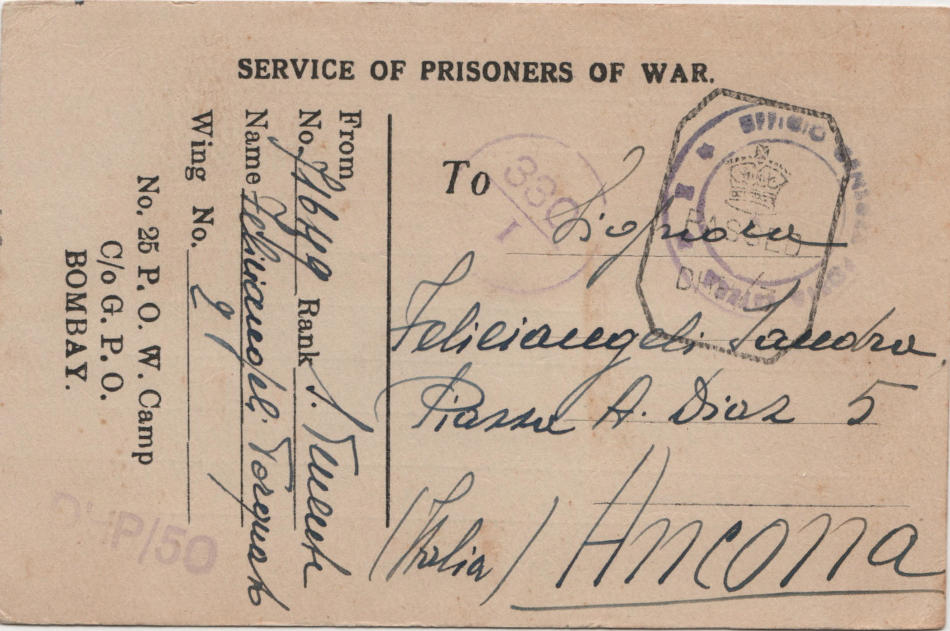 SERVICE OF PRISONERS OF WAR.
To Signora
Feliciangeli Sandra
Piazza A. Diaz 5
Ancona
(Italia)
From
No. Rank S. Tenente
Name Feliciangeli Torquato
Wing No. 21
No. 25 P. O. W. Camp
C/o G. P. O.
BOMBAY.
330
1
UFFICIO CENSURA POSTA
PASSED
DHP/50